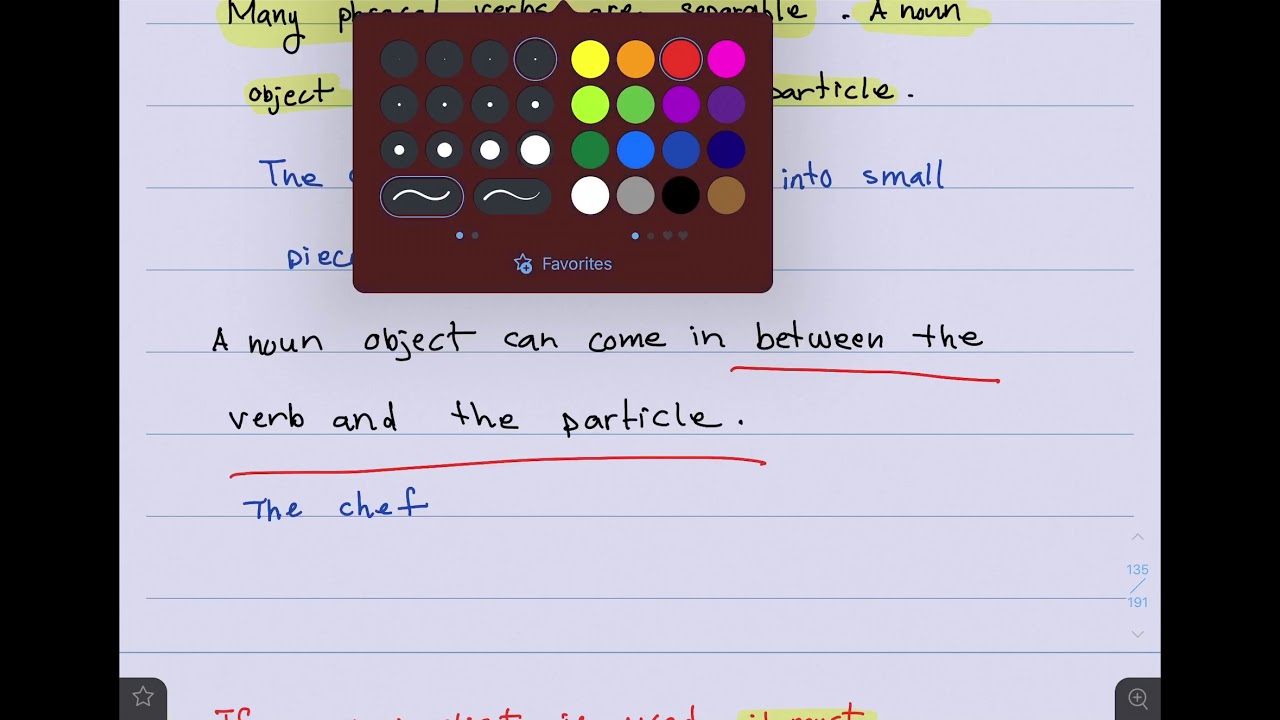 Many phrasal verbs are separable. A noun
object particle.
The into small
Favorites
A noun object can come in between the
verb and the particle.
The chef
135
191
If is used, it must